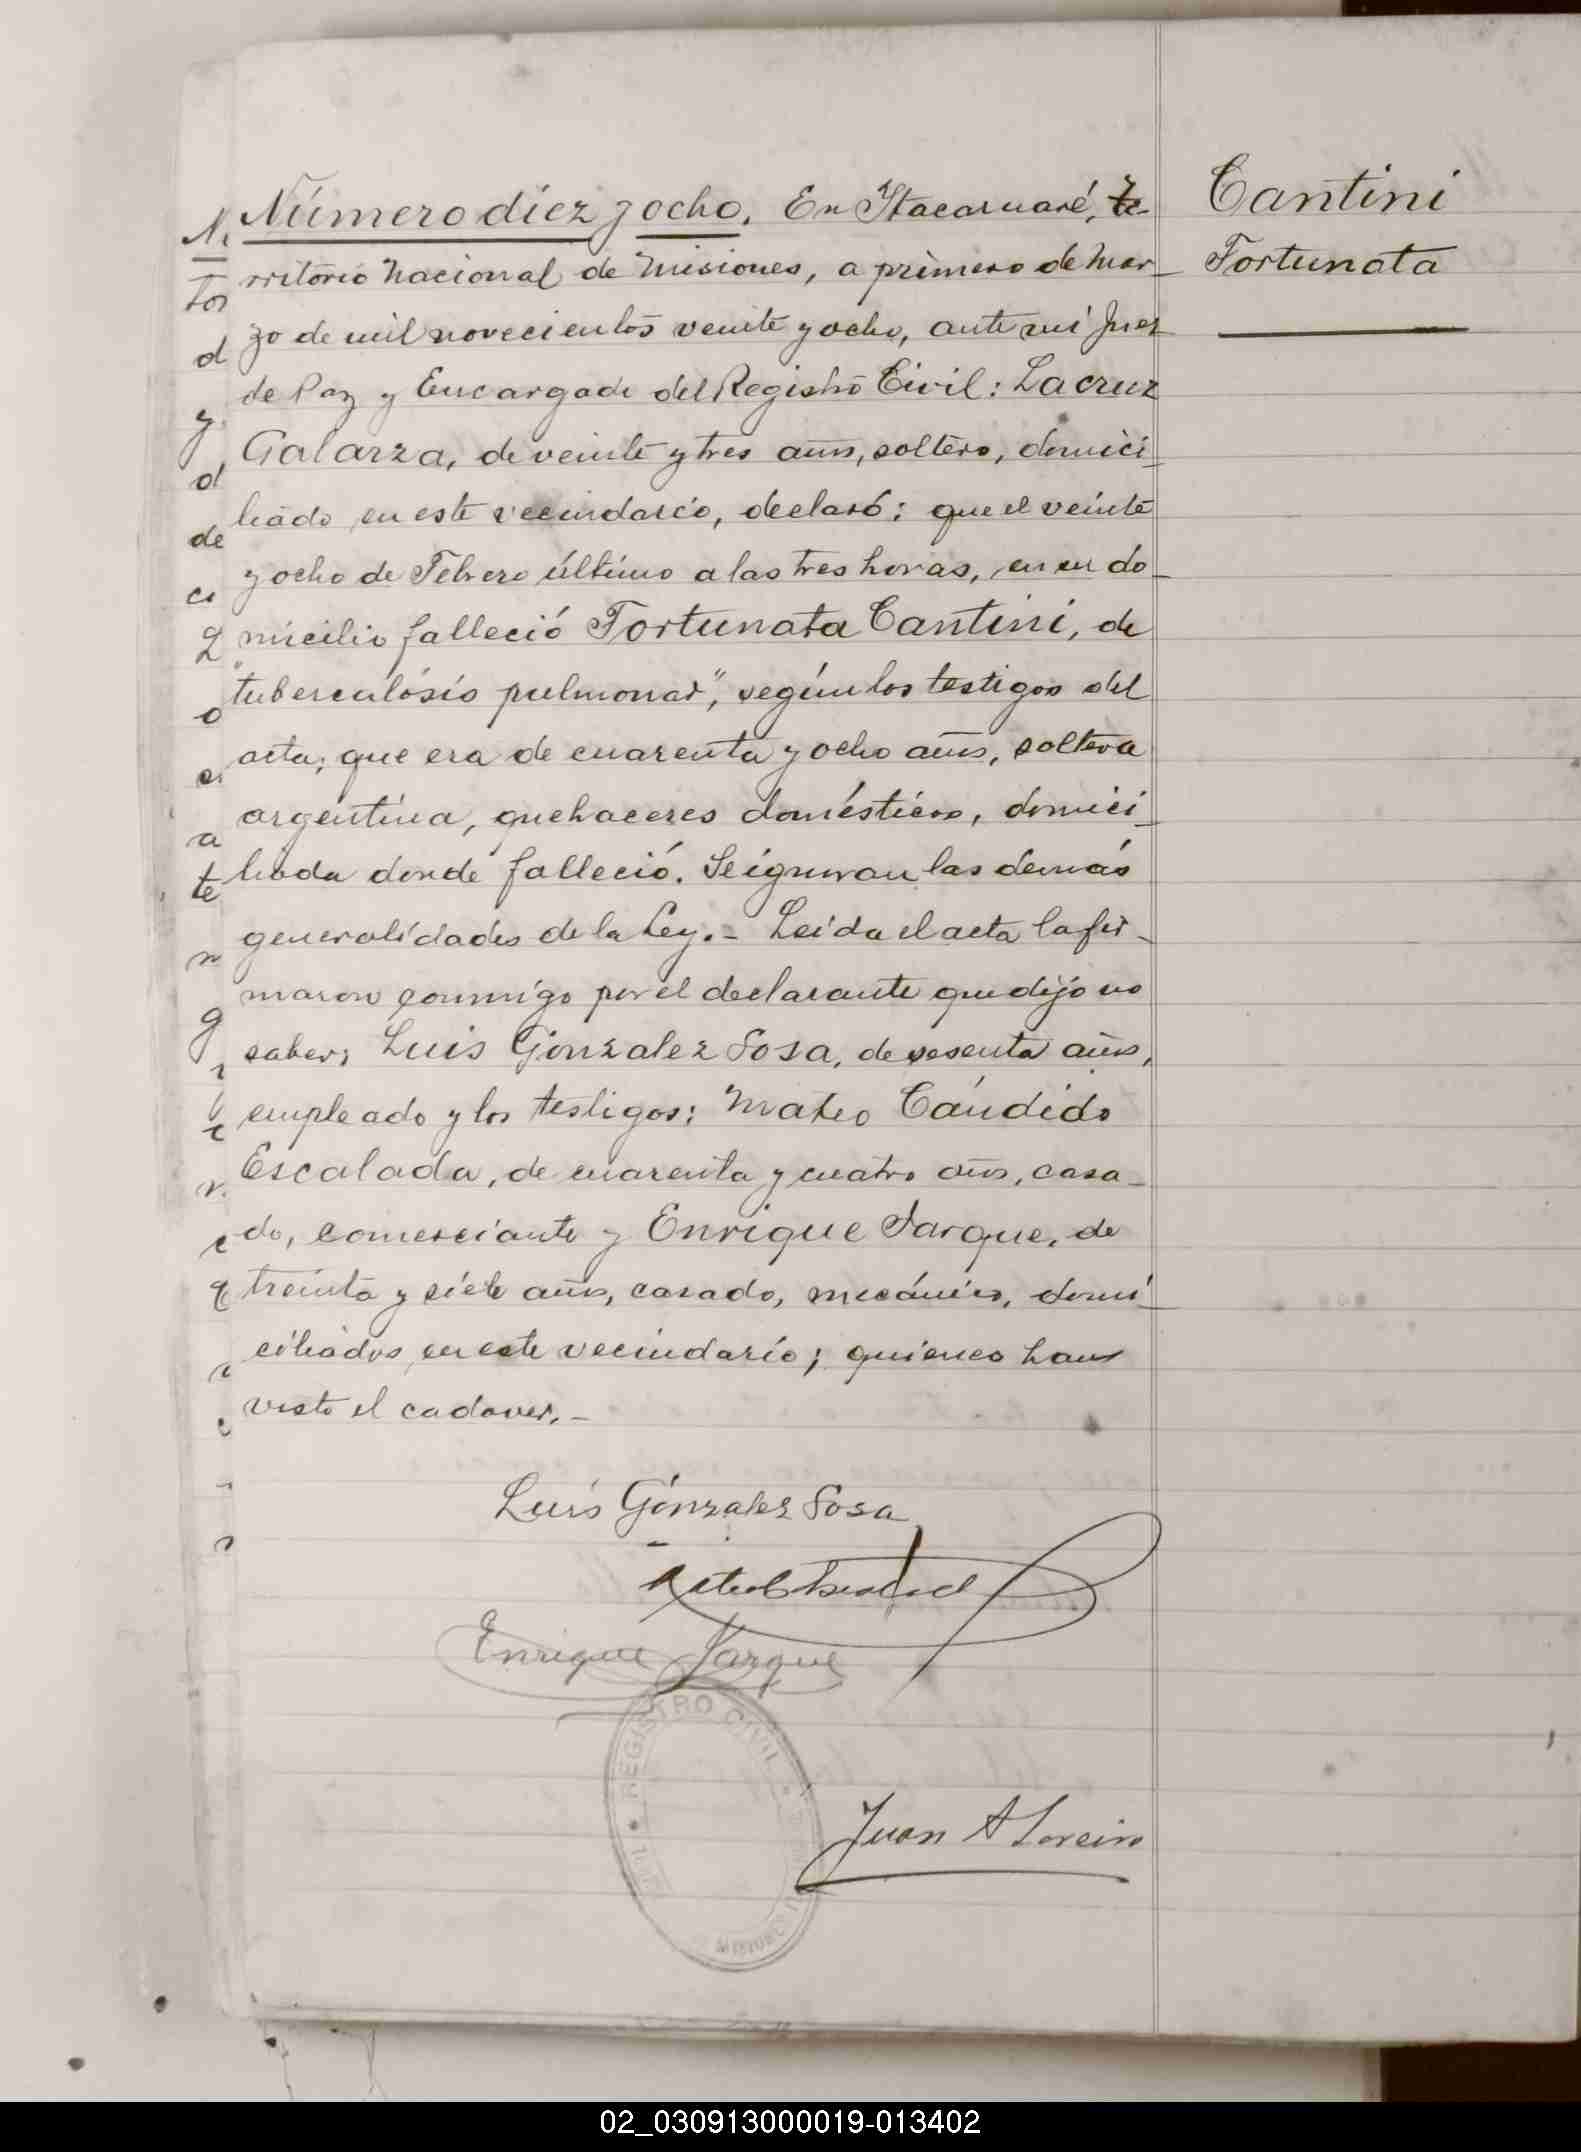 Número diez y ocho. En Itacaruaré, te-
rritorio Nacional de Misiones, a primero de Mar-
zo de mil novecientos veinte y ocho, ante mi Juez
de Paz y Encargado del Registro Civil: Lacruz
Galarza, de veinte y tres años, soltero, domici-
liado en este vecindario, declaró: que el veinte
y ocho de Febrero último a las tres horas, en su do-
micilio falleció Fortunata Cantini, de
"tuberculósis pulmonar", según los testigos del
acta; que era de cuarenta y ocho años, soltera
argentina, quehaceres domésticos, domici-
liada donde falleció. Se ignoran las demás
generalidades de la Ley.- Leida el acta la fir-
maron conmigo por el declarante que dijo no
saber; Luis Gonzalez Sosa, de sesenta años,
empleado y los testigos: Mateo Cándido
Escalada, de cuarenta y cuatro años, casa-
do, comerciante y Enrique Jarque, de
treinta y siete años, casado, mecánico, domi-
ciliados en este vecindario; quienes han
visto el cadaver.-
Cantini
Fortunata
Luis Gonzalez Sosa
Enrique Jarque
REGISTRO CIVIL
MISIONES
Juan A Loreiro
02_030913000019-013402